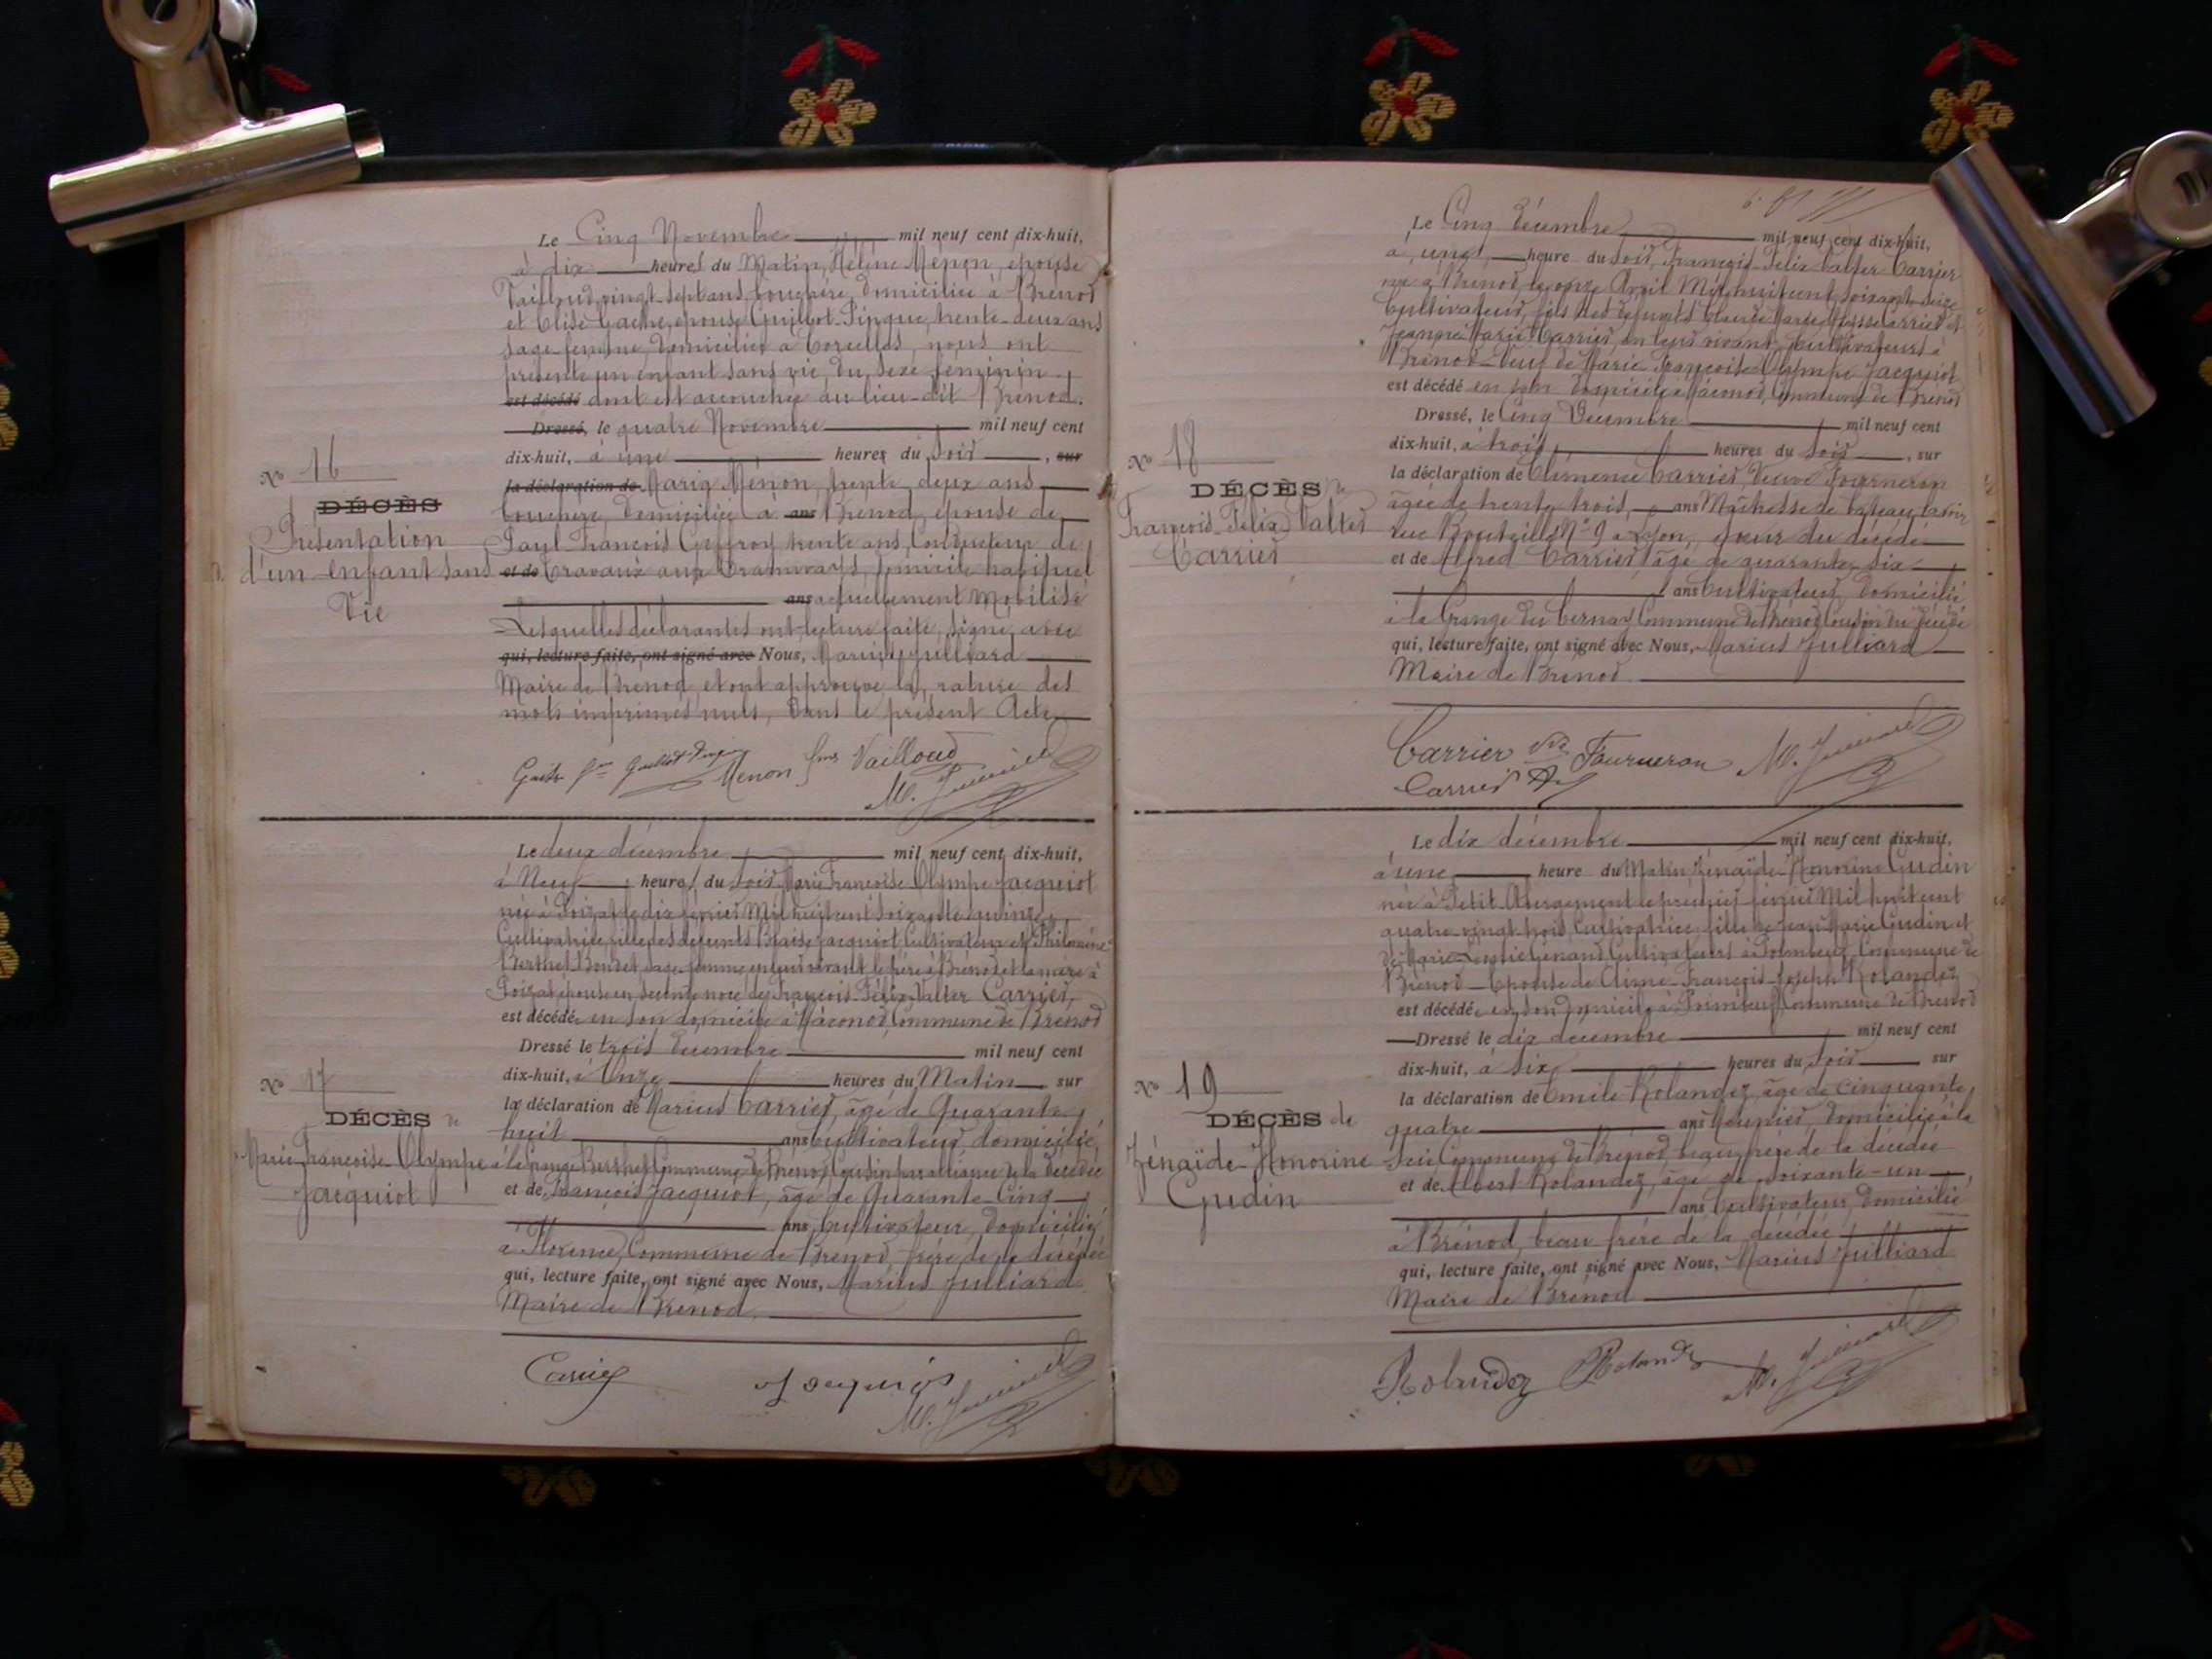 Le Cinq Novembre mil neuf cent dix-huit,
à dix heures du Matin, Hélène Ménon, épouse
Vailloud, vingt-sept ans, bouchère, domiciliée à Brénod
et Elise Gache, épouse Guillot-Pingue, trente-deux ans
sage-femme, domiciliée à Corcelles, nous ont
présenté un enfant sans vie, du sexe féminin
est décédé dont est accouchée au lieu-dit Brénod.
Dressé, le quatre Novembre mil neuf cent
dix-huit, à une heures du Soir, sur
la déclaration de Maria Ménon, trente deux ans
bouchère, domiciliée à ans Brénod, épouse de
Paul François Geffroy, trente ans, Conducteur de
et de travaux aux tramways, domicile habituel
ans actuellement mobilisé
Lesquelles déclarantes ont lecture faite, signé avec
qui, lecture faite, ont signé avec Nous, Marius Julliard
Maire de Brénod, et ont approuvé la rature des
mots imprimés nuls, dans le présent Acte
No 16
DÉCÈS
Présentation
d'un enfant sans
Vie
Menon fme Vailloud
M. Julliard
Le deux décembre mil neuf cent dix-huit,
à Neuf heures du soir, Marie Françoise Olympe Jacquiot
née à Poizat le dix février Mil huit cent soixante quinze,
Cultivatrice, fille des défunts Blaise Jacquiot Cultivateur et Philomène
Berthet-Bondet, sage-femme en leur vivant le père à Brénod et la mère à
Poizat, épouse en seconde noce de François-Félix-Valter Carrier,
est décédée en son domicile à Macconod, Commune de Brénod
Dressé le trois décembre mil neuf cent
dix-huit, à Onze heures du Matin sur
la déclaration de Marius Carrier, âgé de Quarante
huit ans Cultivateur, domicilié
à la Grange Berthet Commune de Brénod, Cousin par alliance de la décédée
et de François Jacquiot, âgé de Quarante-Cinq
ans, Cultivateur, Domicilié
à Florence, Commune de Brénod frère de la décédée
qui, lecture faite, ont signé avec Nous, Marius Julliard
Maire de Brénod
No 17
DÉCÈS de
Marie-Françoise-Olympe
Jacquiot
Carrier Jacquiot
M. Julliard
Le Cinq Décembre mil neuf cent dix-huit,
à une heure du soir, François-Félix Valter Carrier
né à Brénod, le onze Avril Mil huit cent soixante-seize
Cultivateur, fils des défunts Carrier et
Jeanne Marie Carrier, en leur vivant, Cultivateurs à
Brénod Veuf de Marie Françoise Olympe Jacquiot
est décédé en son domicile à Macconod, Commune de Brénod
Dressé, le Cinq Décembre mil neuf cent
dix-huit, à trois heures du Soir, sur
la déclaration de Clémence Carrier, Veuve Fourneron
âgée de trente trois, ans Maîtresse de bateau lavoir
rue Bouteille No 9 à Lyon, soeur du décédé
et de Alfred Carrier, âgé de quarante-six
ans Cultivateur, domicilié
à la Grange du Cernay Commune de Brénod, Cousin du décédé
qui, lecture faite, ont signé avec Nous, Marius Julliard
Maire de Brénod
No 18
DÉCÈS de
François-Félix Valter
Carrier
Carrier Vve Fourneron M. Julliard
Carrier
Le dix décembre mil neuf cent dix-huit,
à une heure du Matin Zénaïde-Honorine Gudin
née à Petit Abergement le premier Mil huit cent
quatre-vingt-trois, Cultivatrice, fille de Jean Marie Gudin et
de Marie Genand Cultivateurs à Commune de
Brénod Epouse de Aimé-François-Joseph Rolandez
est décédée en son domicile à Commune de Brénod
Dressé le dix décembre mil neuf cent
dix-huit, à six heures du Soir sur
la déclaration de Emile Rolandez, âgé de cinquante
quatre ans Meunier, domicilié à la
Scie Commune de Brénod, beau-frère de la décédée
et de Albert Rolandez, âgé de soixante-un
ans Cultivateur, domicilié
à Brénod, beau frère de la décédée
qui, lecture faite, ont signé avec Nous, Marius Julliard
Maire de Brénod
No 19
DÉCÈS de
Zénaïde-Honorine
Gudin
Rolandez Rolandez M. Julliard